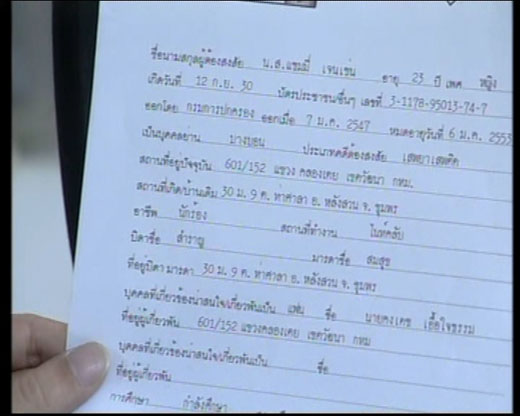 ชื่อนามสกุลผู้ต้องสงสัย น.ส.แซมมี่ เจนเซ่น อายุ 23 ปี เพศ หญิง
เกิดวันที่ 12 ก.ย. 30 บัตรประชาชน/อื่นๆ เลขที่ 3-1178-95013-74-7
ออกโดย กรมการปกครอง ออกเมื่อ 7 ม.ค. 2547 หมดอายุวันที่ 6 ม.ค. 2553
เป็นบุคคลยาน บางบอน ประเภทคดีต้องสงสัย เสพยาเสพติด
สถานที่อยู่ปัจจุบัน 601/152 แขวง คลองเตย เขตวัฒนา กทม.
สถานที่เกิด/บ้านเดิม 30 ม. 9 ต. ท่าศาลา อ. หลังสวน จ. ชุมพร
อาชีพ นักร้อง สถานที่ทำงาน ไนท์คลับ
บิดาชื่อ สำราญ มารดาชื่อ สมสุข
ที่อยู่บิดา มารดา 30 ม. 9 ต. ท่าศาลา อ. หลังสวน จ. ชุมพร
บุคคลที่เกี่ยวข้องน่าสนใจ/เกี่ยวพันเป็น แฟน ชื่อ นายคงเดช เอื้อใจธรรม
ที่อยู่ผู้เกี่ยวพัน 601/152 แขวงคลองเตย เขตวัฒนา กทม
บุคคลที่เกี่ยวข้องน่าสนใจ/เกี่ยวพันเป็น ชื่อ
ที่อยู่ผู้เกี่ยวพัน
การศึกษา กำลังศึกษา